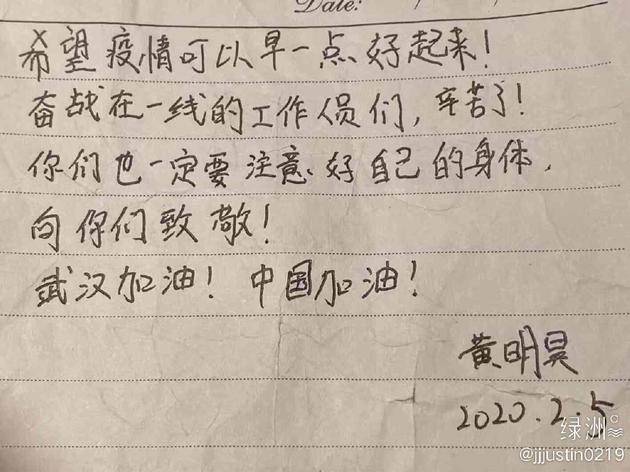 Date:
希望疫情可以早一点好起来!
奋战在一线的工作人员们,辛苦了!
你们也一定要注意好自己的身体,
向你们致敬!
武汉加油! 中国加油!
黄明昊
2020.2.5
绿洲
@jjjustin0219